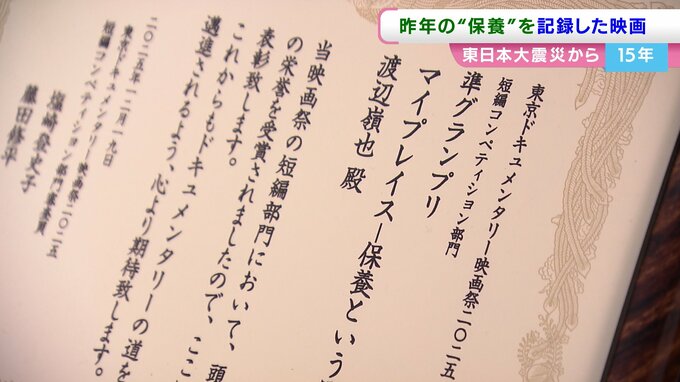 昨年の“保養”を記録した映画
東日本大震災から 15年
東京ドキュメンタリー映画祭二〇二五
短編コンペティション部門
準グランプリ
マイプレイス―保養という
渡辺嶺也 殿
当映画祭の短編部門において、頭
の栄誉を受賞されましたので、ここ
表彰致します。
これからもドキュメンタリーの道を
邁進されるよう、心より期待致します。
二〇二五年一二月一九日
東京ドキュメンタリー映画祭二〇二五
短編コンペティション部門審査員
塩崎登史子
藤田修平